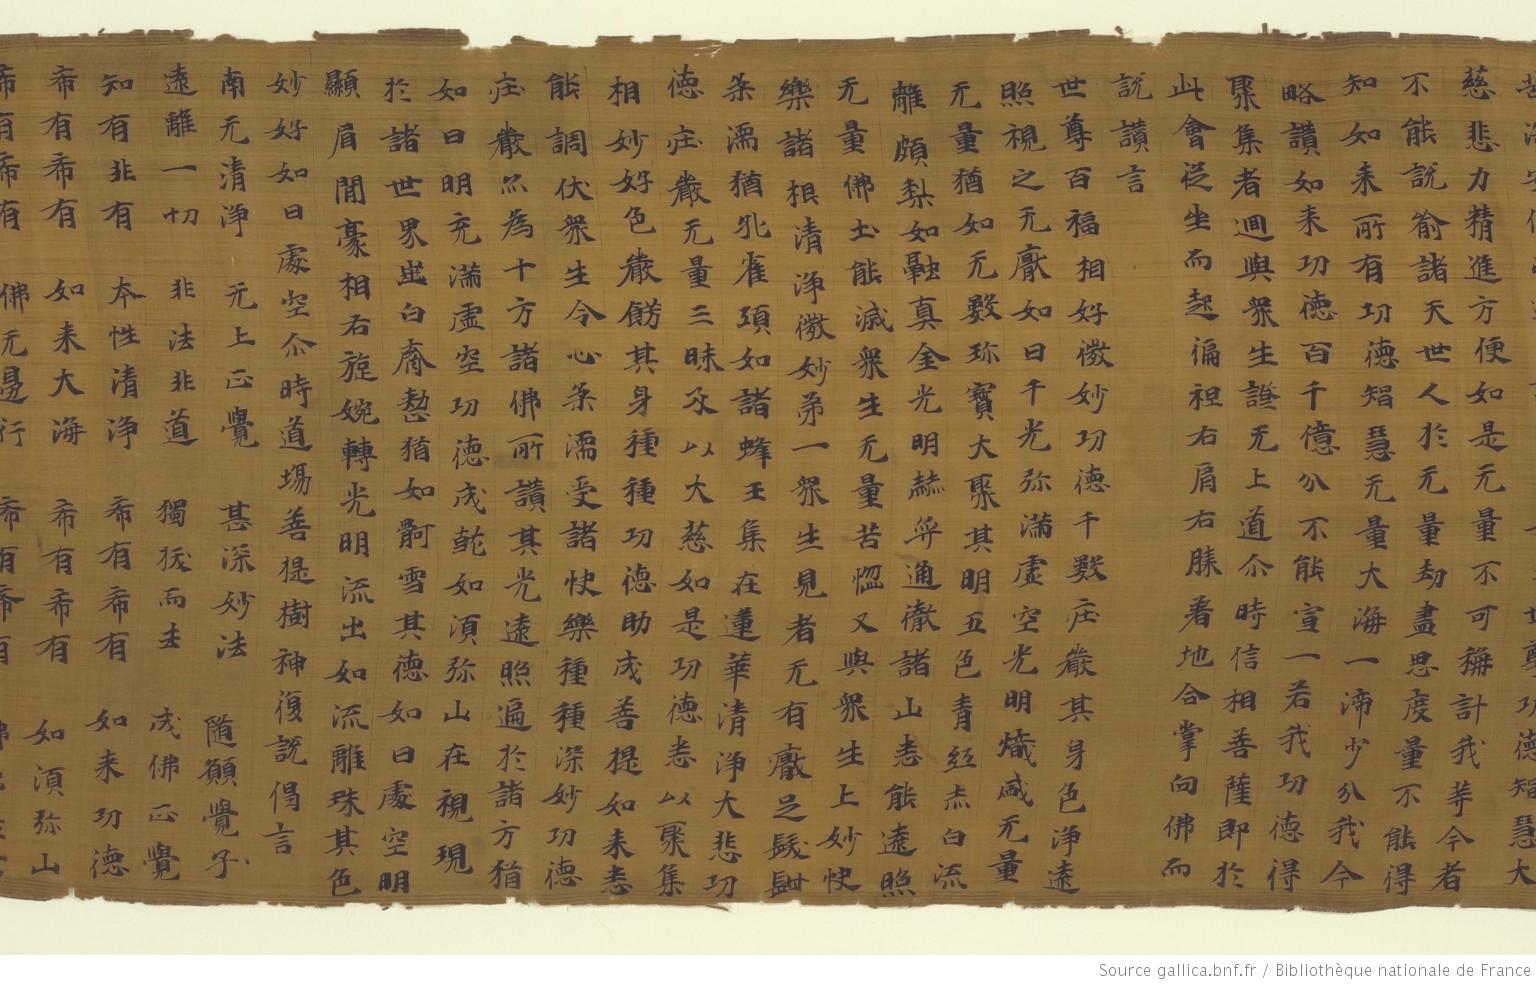 慈悲力精進方便如是无量不可稱計我等今者
不能說喻諸天世人於无量劫盡思度量不能得
知如来所有功德智慧无量大海一渧少分我今
略讚如来功德百千億分不能宣一若我功德得
聚集者迴與衆生證无上道尒時信相菩薩即於
此會從坐而起徧袒右肩右膝著地合掌向佛而
說讚言
世尊百福相好微妙功德千數庄嚴其身色淨遠
照視之无厭如日千光弥滿虛空光明熾盛无量
无量猶如无數珎寶大聚其明五色青紅赤白流
離頗梨如融真金光明赫弈通徹諸山悉能遠照
无量佛土能滅衆生无量苦惱又與衆生上妙快
樂諸根清淨微妙第一衆生見者无有厭足髮紺
柔濡猶孔雀項如諸蜂王集在蓮華清淨大悲功
德庄嚴无量三昧及以大慈如是功德悉以聚集
相妙好色嚴餝其身種種功德助成菩提如来悉
能調伏衆生令心柔濡受諸快樂種種深妙功德
庄嚴尒為十方諸佛所讚其光遠照遍於諸方猶
如日明充滿虛空功德成就如湏弥山在視現
於諸世界齒白齊密猶如珂雪其德如日處空明
顯眉間豪相右旋婉轉光明流出如流離珠其色
妙好如日處空尒時道場菩提樹神復說偈言
南无清淨 无上正覺 甚深妙法 随順覺了
遠離一切 非法非道 獨拔而出 成佛正覺
知有非有 本性清淨 希有希有 如来功德
希有希有 如来大海 希有希有 如湏弥山
希有希有 佛无邊行 希有希有
Source gallica.bnf.fr / Bibliothèque nationale de France